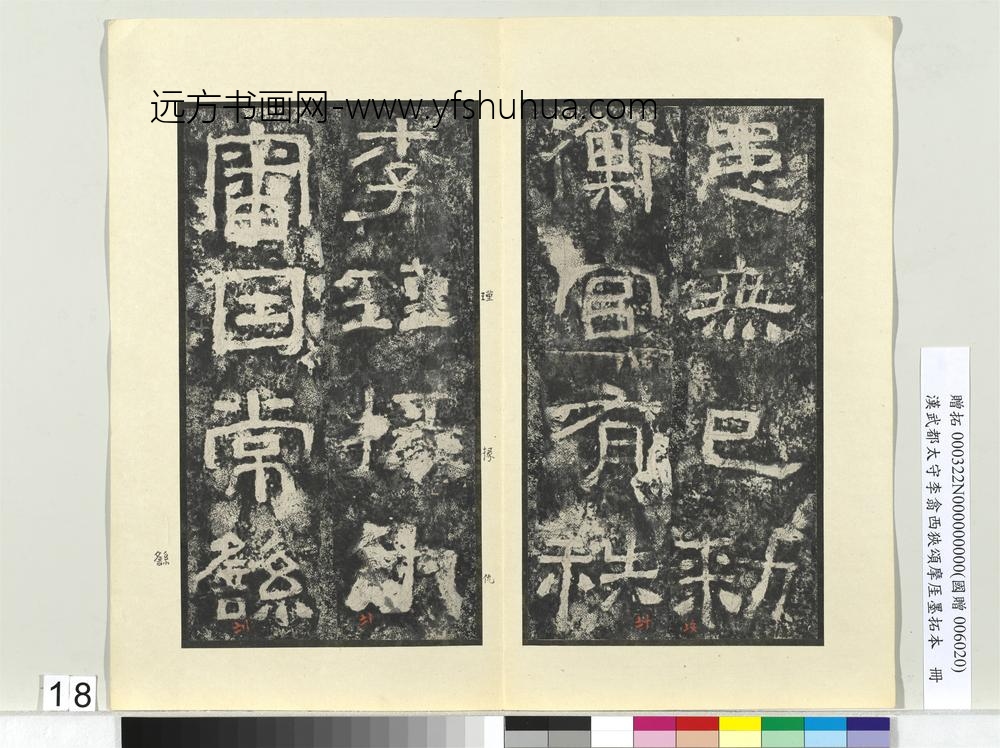 远方书画网-www.yfshuhua.com
患無已勑
衡官有秩
李瑾掾仇
審因常繇
瑾
掾
仇
繇
贈拓 000322N000000000(國贈 006020)
漢武都太守李翕西狹頌摩厓墨拓本 冊
18